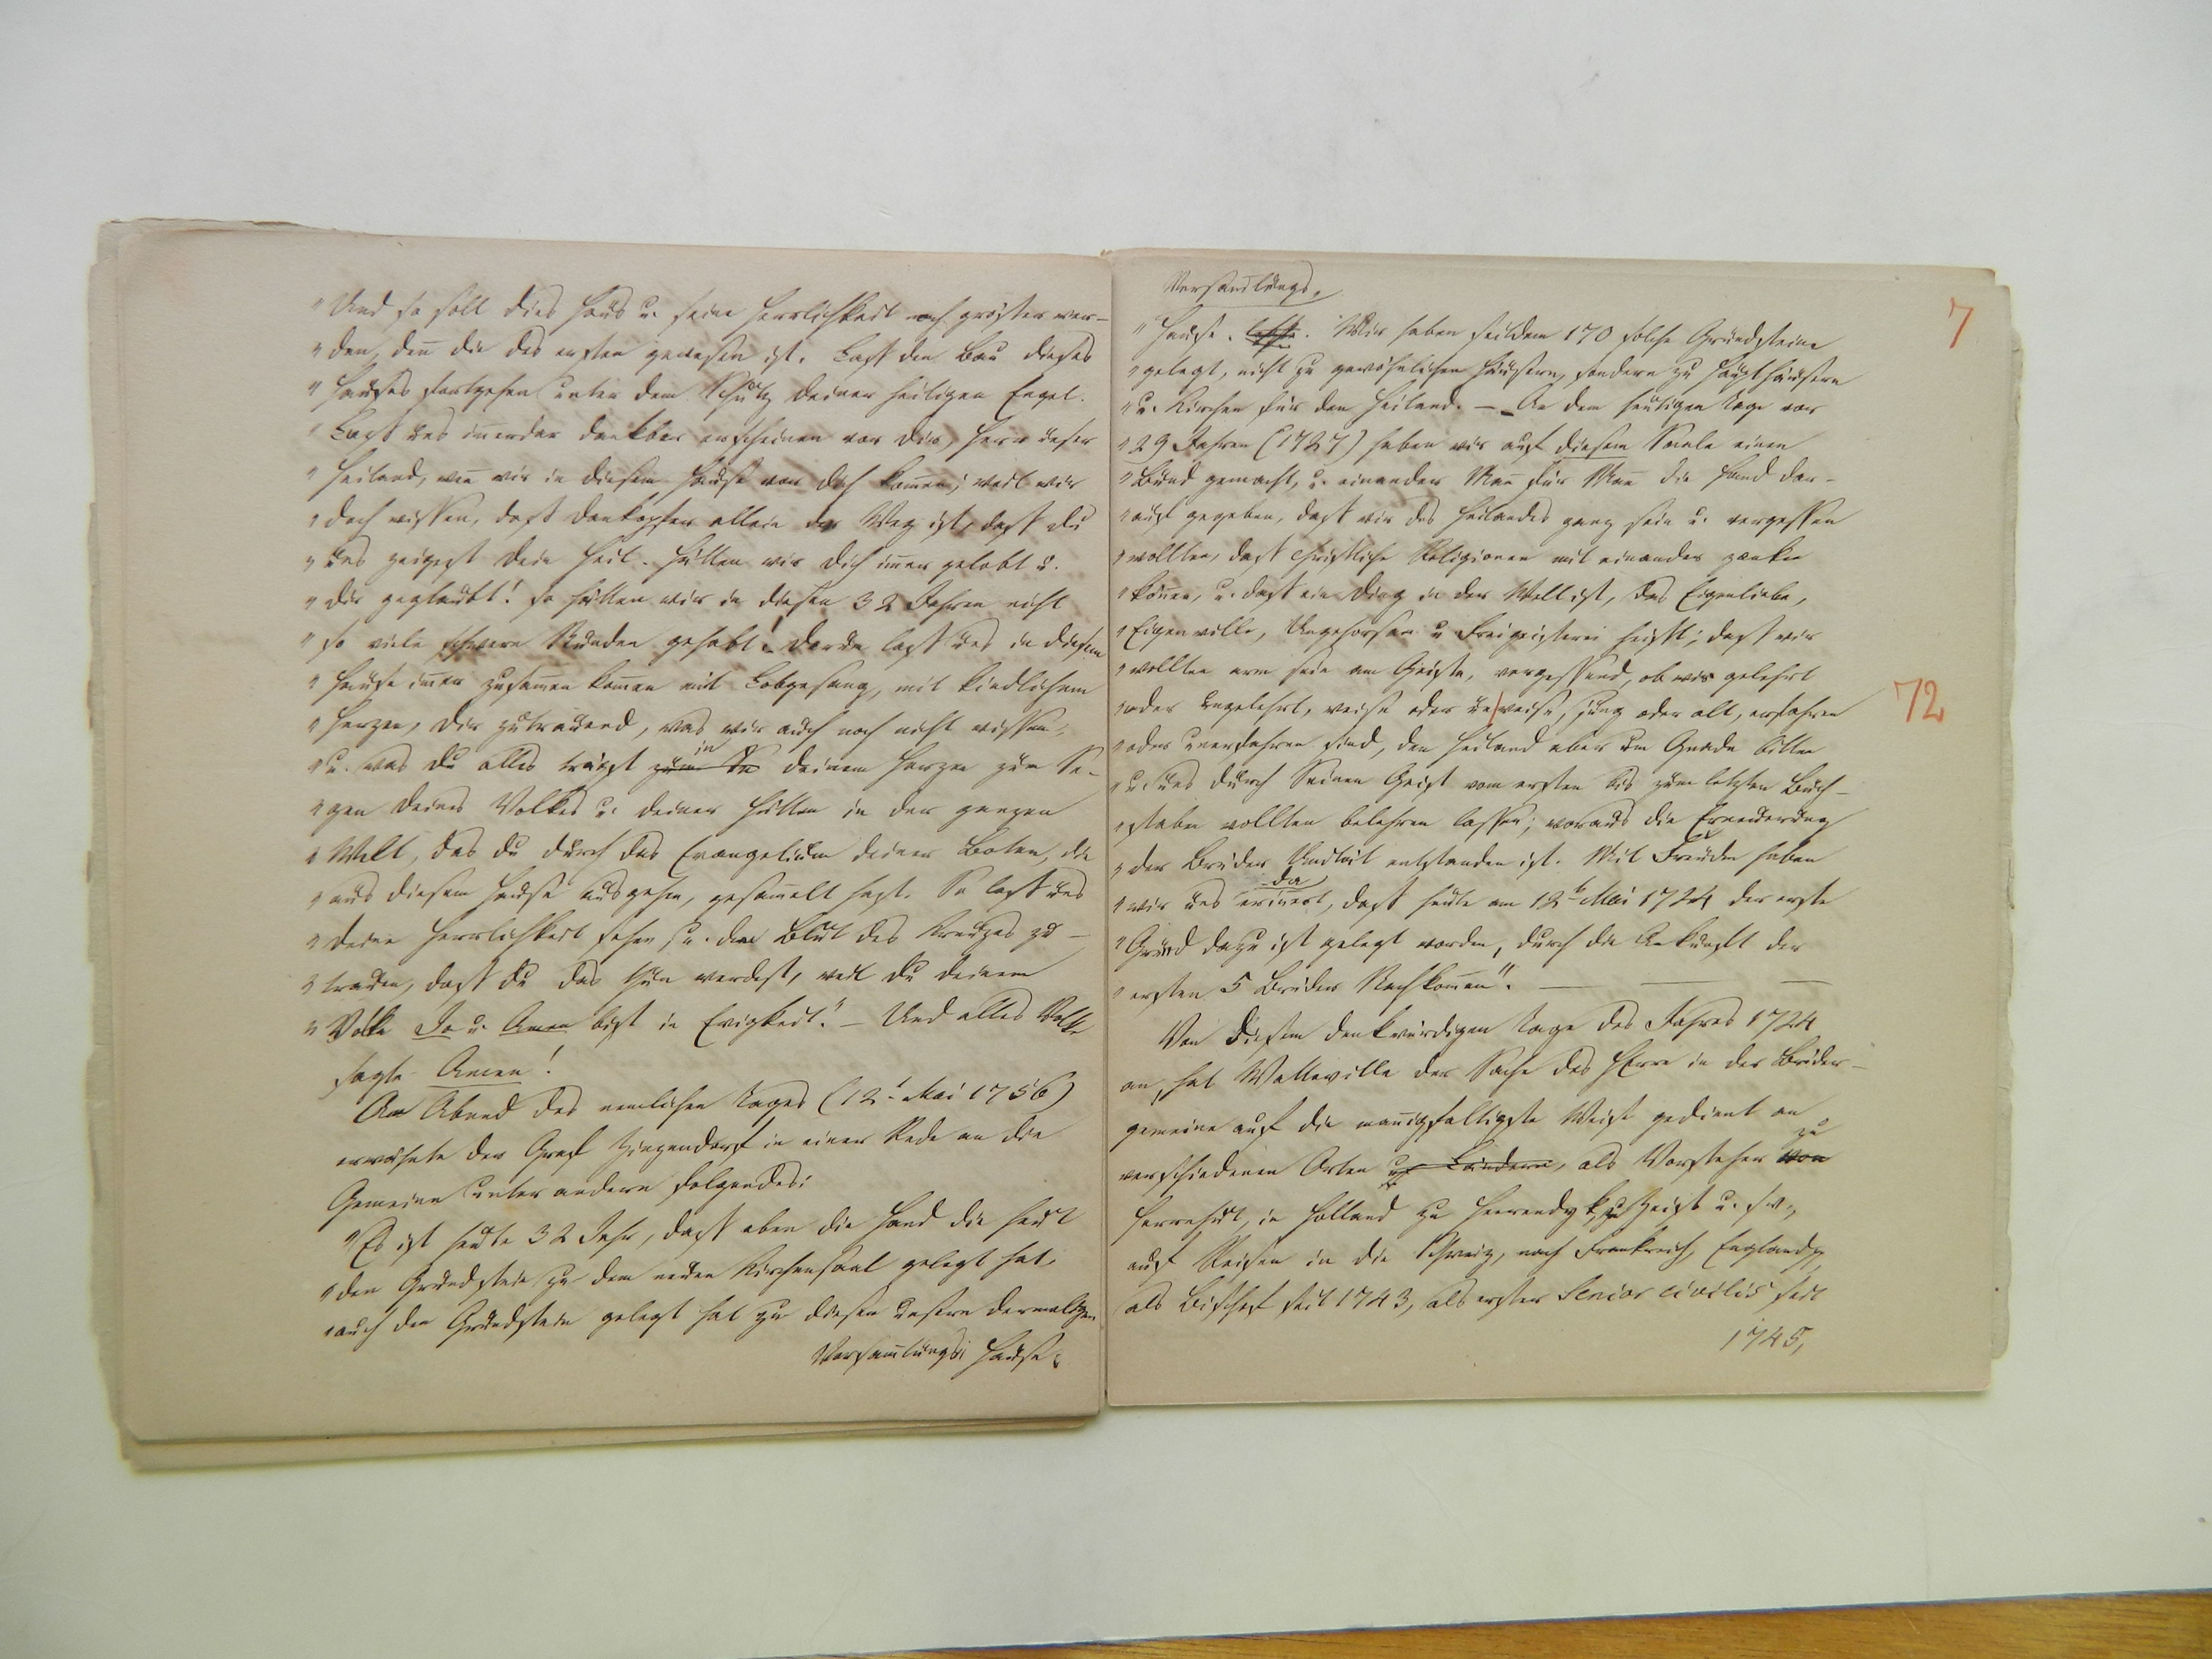 „Und so soll dies Haus u. seine Herrlichkeit noch größer wer-
„den, deñ die des ersten gewesen ist. Laß den Bau dieses
„Hauses fortgehen unter dem Schutz deiner heiligen Engel.
„Laß uns im̄erdar dankbar erscheinen vor dir, Herr unser
„Heiland, weñ wir in diesem Hause vor dich kom̄en; weil wir
„doch wissen, daß Dankopfer allein der Weg ist, daß du
„uns zeigest dein Heil. Hätten wir dich im̄er gelobt u.
„dir geglaubt! so hätten wir in diesen 32 Jahren nicht
„so viele schwere Stunden gehabt! Darum laß uns in diesem
„Hause im̄er zusam̄en kom̄en mit Lobgesang, mit kindlichem
„Herzen, dir zutrauend, was wir auch noch nicht wissen,
in
„u. was du alles trägst zum Se deinem Herzen zum Se-
„gen deines Volkes u. deiner Hütten in der ganzen
„Welt, das du durch das Evangelium deiner Boten, die
„aus diesem Hause ausgehen, gesam̄elt hast. So laß uns
„deine Herrlichkeit sehen u. dem Blut des Kreuzes zu-
„trauen, daß du das thun werdest, weil du deinem
„Volke Ja u. Amen bist in Ewigkeit.“ – Und alles Volk
sagte Amen!
Am Abend des nemlichen Tages (12t. Mai 1756)
erwähnte der Graf Zinzendorf in einer Rede an die
Gemeine unter andern folgendes:
„Es ist heute 32 Jahr, daß eben die Hand die heut
„den Grundstein zu dem neuen Kirchensaal gelegt hat,
„auch den Grundstein gelegt hat zu diesem unserm dermaligen
Versam̄lungs: Hause.
Versam̄lungs.
7
„Hause. Wir haben seitdem 170 solche Grundsteine
„gelegt, nicht zu gewöhnlichen Häusern, sondern zu Haupthäusern
„u. Kirchen für den Heiland. – An dem heutigen Tage vor
„29 Jahren (1727) haben wir auf diesem Saale einen
„Bund gemacht, u. einander Mañ für Mañ die Hand dar-
„auf gegeben, daß wir des Heilandes ganz sein u. vergessen
„wollten, daß christliche Religionen mit einander zanken
„köñen, u. daß ein Ding in der Welt ist, das Eigenliebe,
„Eigenwille, Ungehorsam u Freigeisterei heißt; daß wir
„wollten arm sein am Geiste, vergessend, ob wir gelehrt
72
„oder ungelehrt, weise oder un|weise, jung oder alt, erfahren
„oder unerfahren sind, den Heiland aber um Gnade bitten
„u. uns durch Seinen Geist vom ersten bis zum letzten Buch-
„staben wollten belehren lassen; woraus die Erneuerung
„der Brüder Unität entstanden ist. Mit Freuden haben
da
„wir uns eriñert, daß heute am 12t Mai 1724 der erste
„Grund dazu ist gelegt worden, durch die Ankunft der
„ersten 5 Brüder Nachkom̄en“. — — —
Von diesem denkwürdigen Tage des Jahres 1724
an, hat Watteville der Sache des HErrn in der Brüder-
gemeine auf die mañigfaltigste Weise gedient an
zu
verschiedenen Orten u. Ländern, als Vorsteher von
Herrnhut, in Holland zu Heerendyk, zu Zeist u. s. w.,
auf Reisen in die Schweiz, nach Frankreich, England,
als Bischof seit 1743, als erster Senior civilis seit
1745,